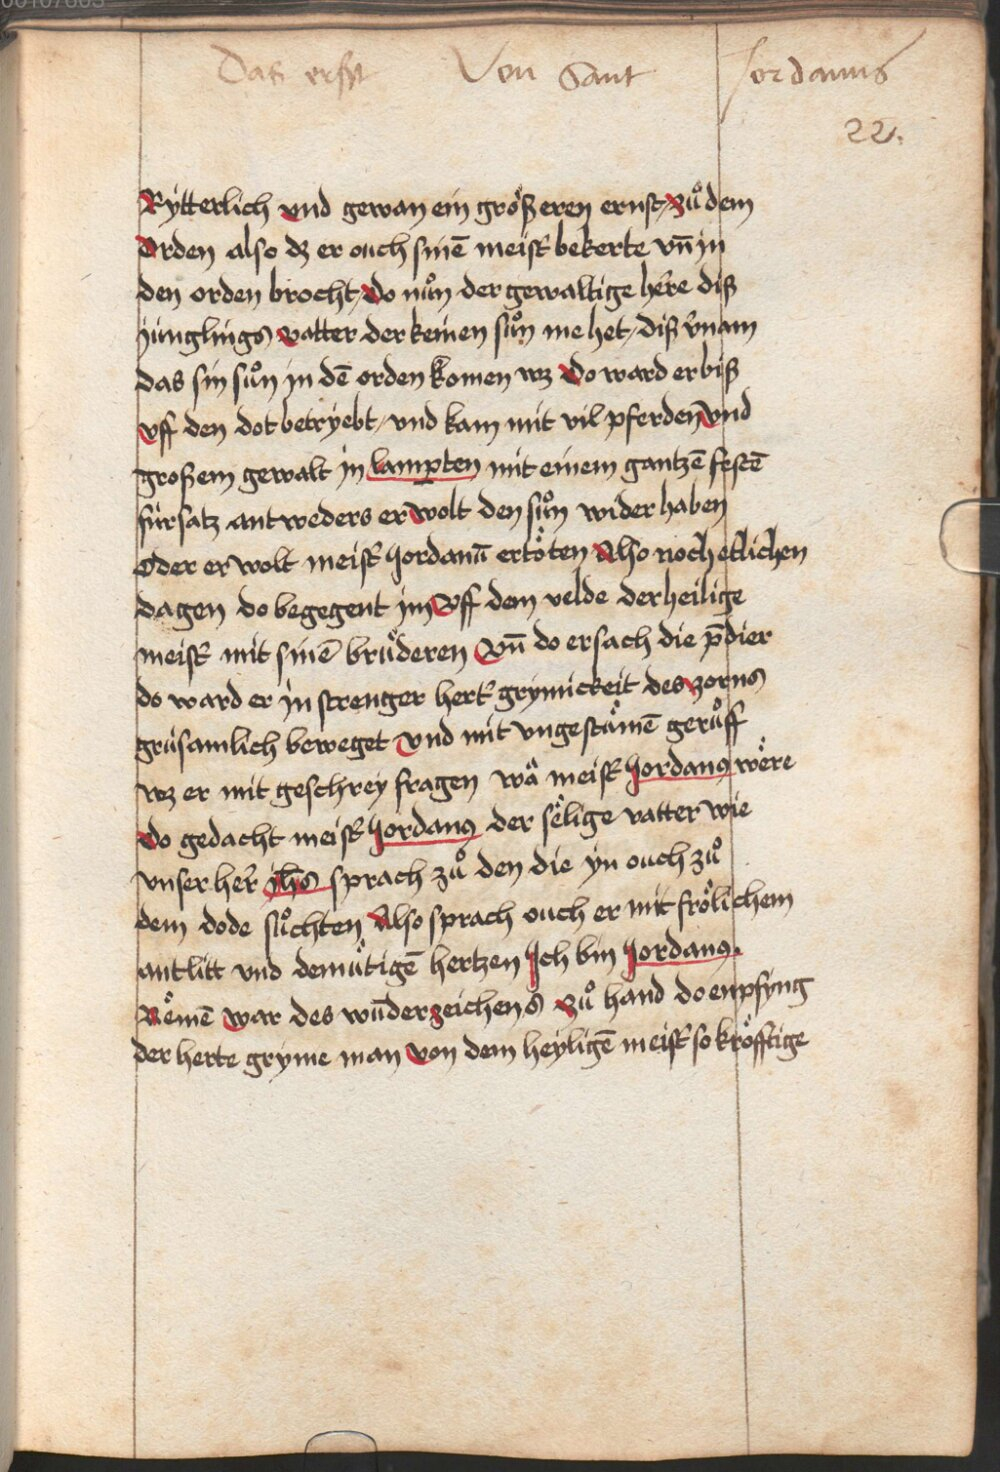 Das erst Von Sant Jordanus
22.
Rytterlich vnd gewan ein größeren ernst zuͦ dem
Orden also dz er ouch sinē meist᷑ bekerte vn̄ jn
den orden brocht / Do nuͦn der gewaltige here diß
jünglings vatter der keinen suͦn me het / diß v᷑nam
das sin suͦn jn dē orden komen wz Do ward er biß
vff den dot betryebt / vnd kam mit vil pferden vnd
großem gewalt jn lampten mit einem gantzē festē
fürsatz antweders er wolt den suͦn wider haben
Oder er wolt meist᷑ Jordanū ertöten Also noch etlichen
dagen do begegent jm Vff dem velde der heilige
meist᷑ mit sinē brüderen Vn̄ do er sach die p̄dier
do ward er jn strenger hert᷑ grymickeit des zorns
grüsamlich beweget Vnd mit vngestümē geruͦff
wz er mit geschrey fragen wä meist᷑ Jordanꝯ wëre
Do gedacht meist᷑ Jordanꝯ der sëlige vatter wie
vnser her᷑ jh̄s sprach zuͦ den die yn ouch zuͦ
dem dode suͦchten Also sprach ouch er mit frölichem
antlitt vnd demütigē hertzen Ich bin Jordanꝯ.
Nëmē war des wūderzeichens Zuͦ hand do enpfyng
der herte gryme man von dem heyligē meist᷑ so kröfftige